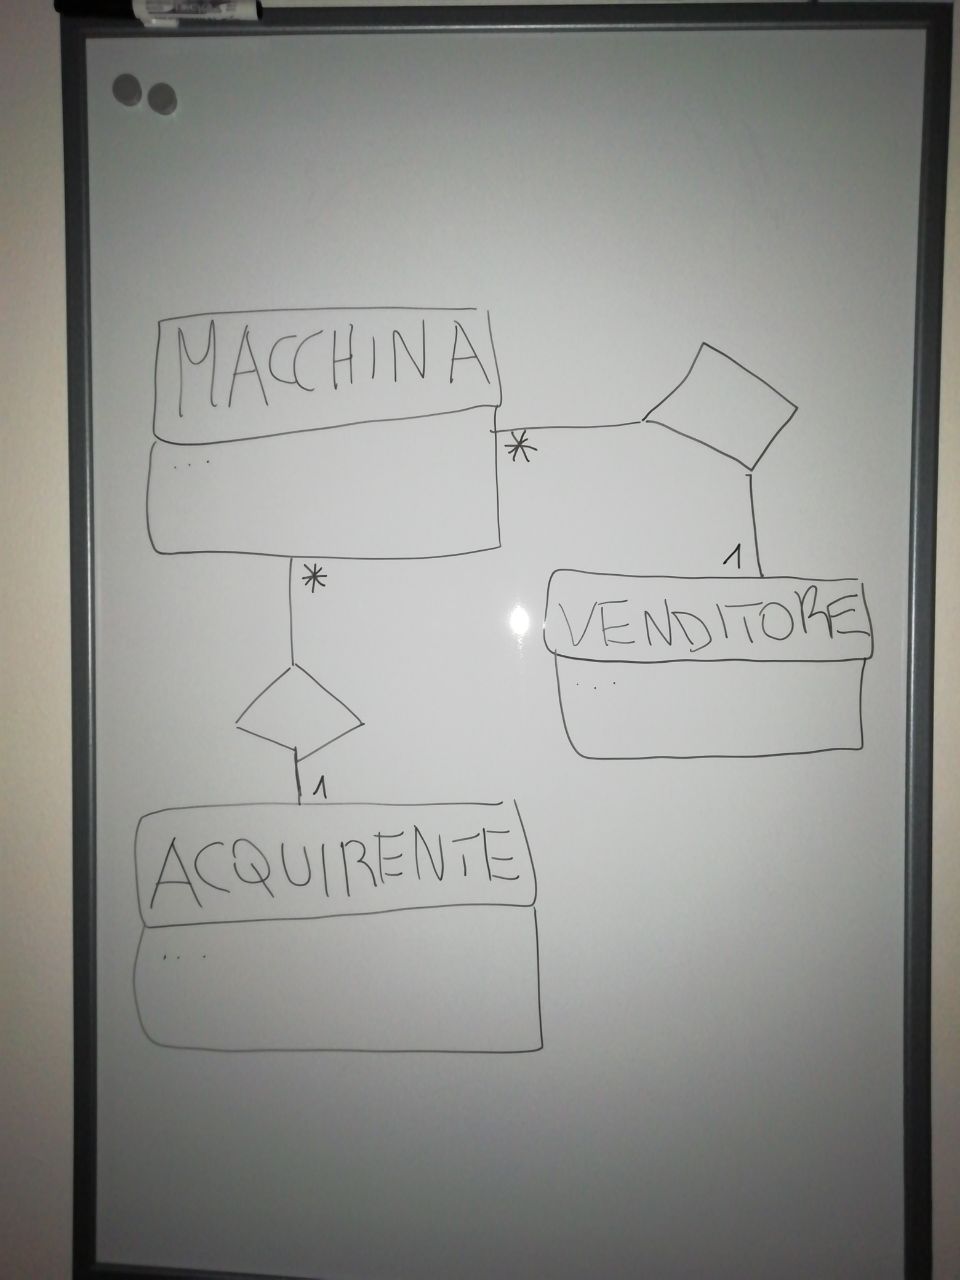 MACCHINA
...
*
*
1
VENDITORE
...
1
ACQUIRENTE
...